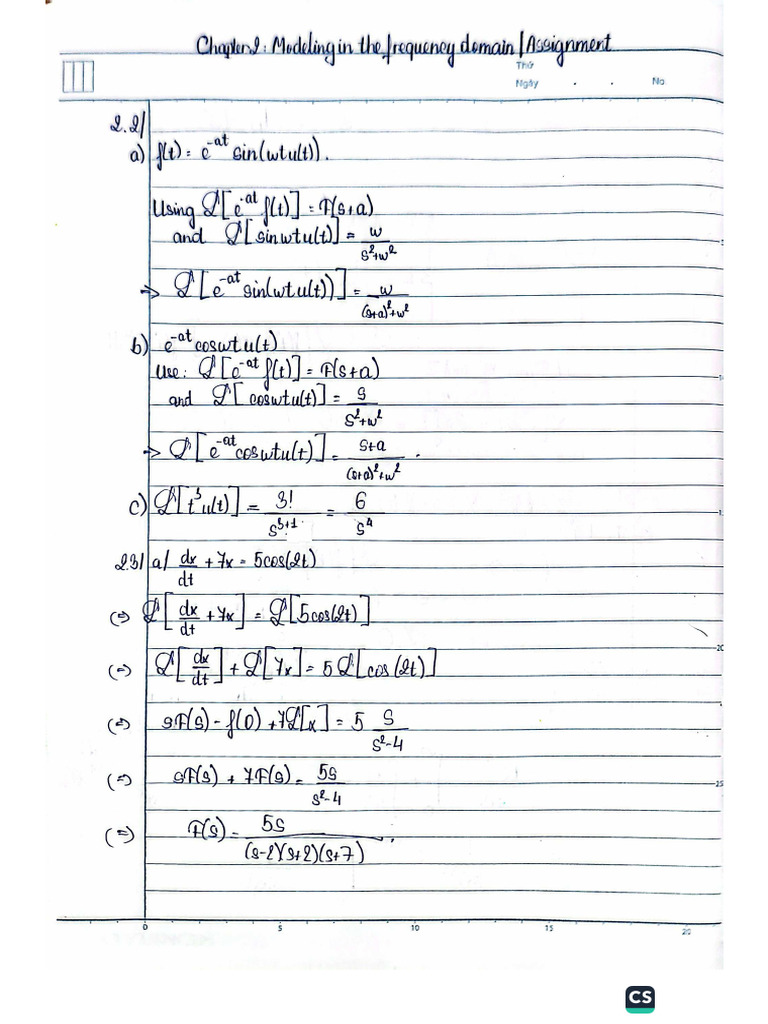 Chapter 2: Modeling in the frequency domain / Assignment
Thứ
Ngày . . No
2.2/
a) f(t) = e^{-at} sin(ωt u(t)).
Using ℒ[e^{-at} f(t)] = F(s+a)
and ℒ[sinωt u(t)] = ω/(s²+ω²)
→ ℒ[e^{-at} sin(ωt u(t))] = ω/((s+a)²+ω²)
b) e^{-at} cosωt u(t)
Use: ℒ[e^{-at} f(t)] = F(s+a)
and ℒ[cosωt u(t)] = s/(s²+ω²)
→ ℒ[e^{-at} cosωt u(t)] = (s+a)/((s+a)²+ω²).
c) ℒ[t³u(t)] = 3!/s^{3+1} = 6/s⁴
2.3/ a/ dx/dt + 7x = 5cos(2t)
(=) ℒ[dx/dt + 7x] = ℒ[5cos(2t)]
(=) ℒ[dx/dt] + ℒ[7x] = 5ℒ[cos(2t)]
(=) sF(s) - f(0) + 7ℒ[x] = 5 s/(s²-4)
(=) sF(s) + 7F(s) = 5s/(s²-4)
(=) F(s) = 5s/((s-2)(s+2)(s+7)).
0 5 10 15 20
5
10
15
20
25
CS